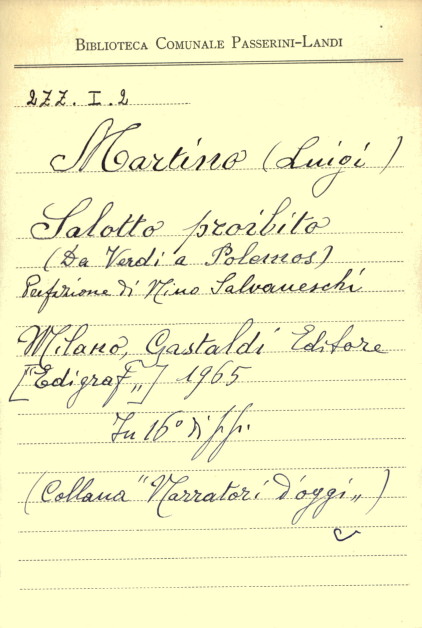 Biblioteca Comunale Passerini-Landi
277. I. 2
Martino (Luigi)
Salotto proibito
(Da Verdi a Polemos)
Prefazione di Nino Salvaneschi
Milano, Gastaldi Editore
["Edigraf„] 1965
In 16° di pp.
(Collana "Narratori d'oggi„)